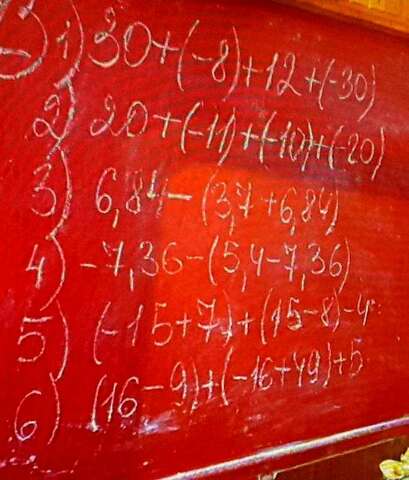 1) 30+(-8)+12+(-30)
2) 20+(-11)+(-10)+(-20)
3) 6,84-(3,7+6,84)
4) -7,36-(5,4-7,36)
5) (-15+7)+(15-8)-4
6) (16-9)+(-16+49)+5